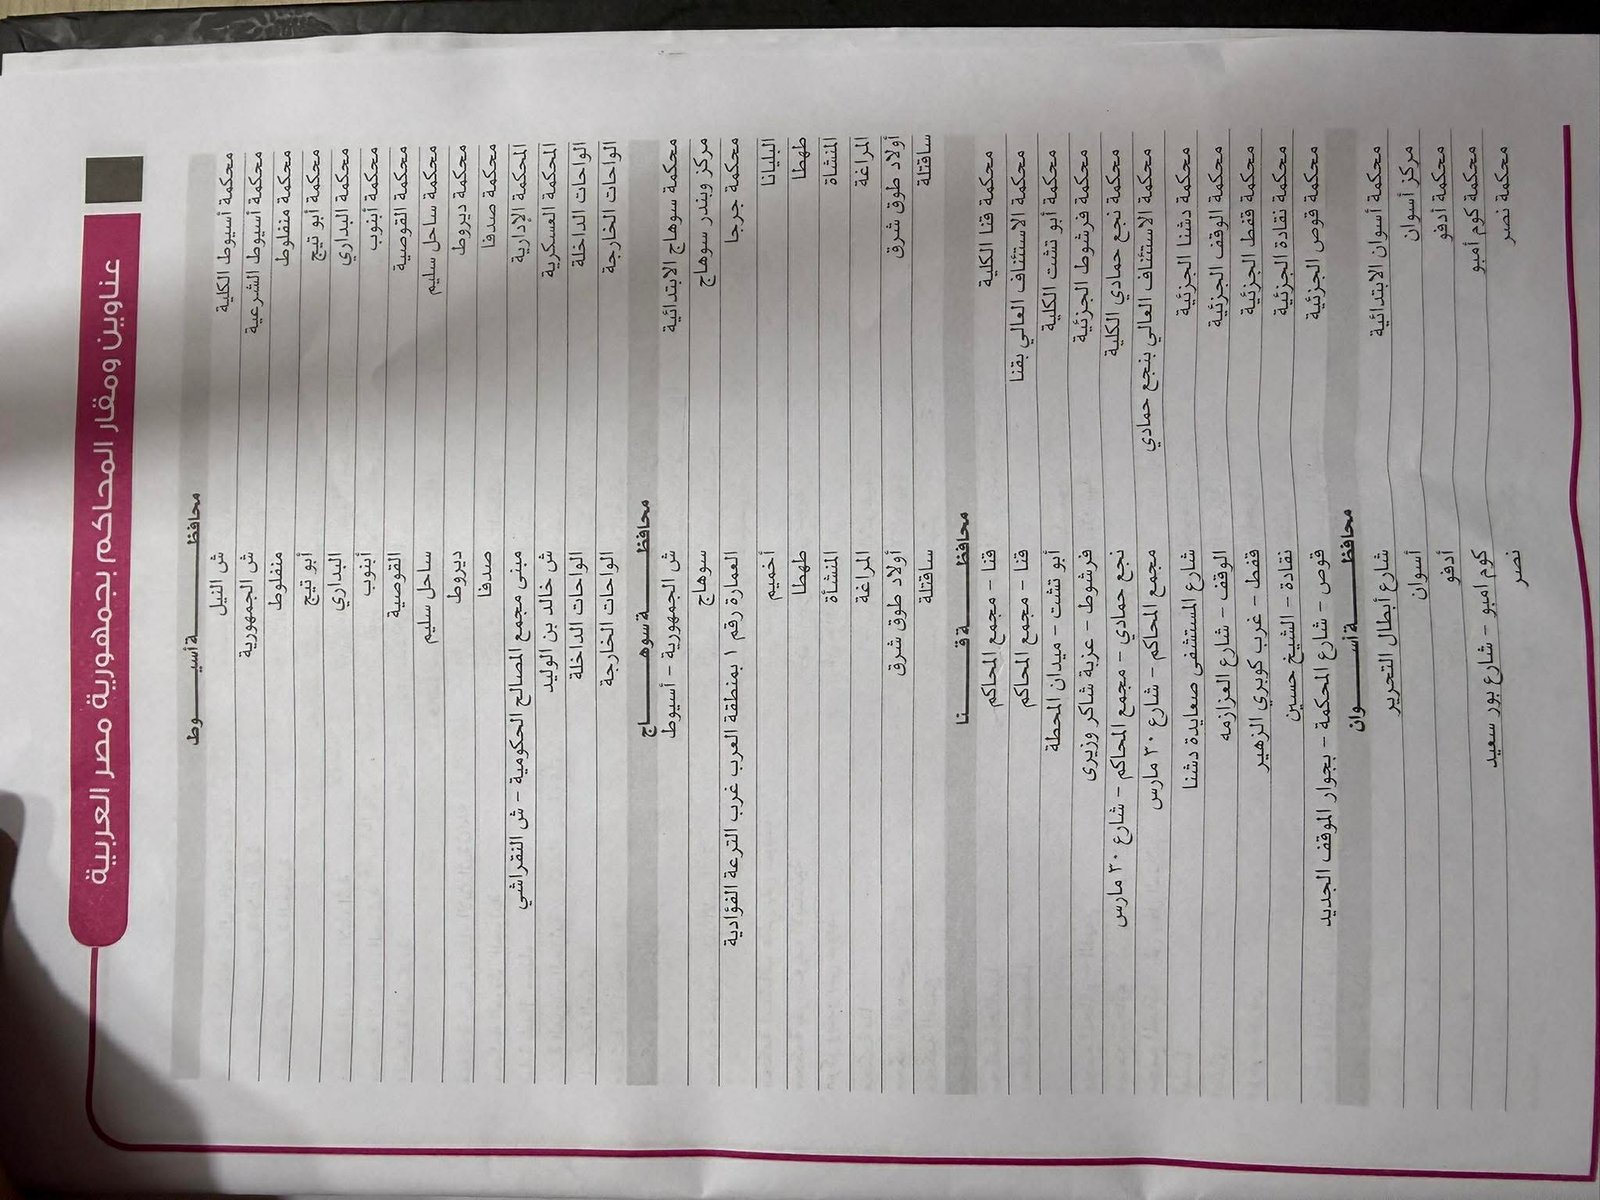 عناوين ومقار المحاكم بجمهورية مصر العربية
محافظــــــــة أسيــــــــوط
محكمة أسيوط الكلية ش النيل
محكمة أسيوط الشرعية ش الجمهورية
محكمة منفلوط منفلوط
محكمة أبو تيج أبو تيج
محكمة البداري البداري
محكمة أبنوب أبنوب
محكمة القوصية القوصية
محكمة ساحل سليم ساحل سليم
محكمة ديروط ديروط
محكمة صدفا صدفا
المحكمة الإدارية مبنى مجمع المصالح الحكومية - ش النقراشي
المحكمة العسكرية ش خالد بن الوليد
الواحات الداخلة الواحات الداخلة
الواحات الخارجة الواحات الخارجة
محافظــــــــة سوهــــــــاج
محكمة سوهاج الابتدائية ش الجمهورية - أسيوط
مركز وبندر سوهاج سوهاج
محكمة جرجا العمارة رقم ١ بمنطقة العرب غرب الترعة الفؤادية
البليانا أخميم
طهطا طهطا
المنشاة المنشأة
المراغة المراغة
أولاد طوق شرق أولاد طوق شرق
ساقتلة ساقتلة
محافظــــــــة قــــــــنا
محكمة قنا الكلية قنا - مجمع المحاكم
محكمة الاستئناف العالي بقنا قنا - مجمع المحاكم
محكمة أبو تشت الكلية أبو تشت - ميدان المحطة
محكمة فرشوط الجزئية فرشوط - عزبة شاكر وزيرى
محكمة نجع حمادي الكلية نجع حمادي - مجمع المحاكم - شارع ٣٠ مارس
محكمة الاستئناف العالي بنجع حمادي مجمع المحاكم - شارع ٣٠ مارس
محكمة دشنا الجزئية شارع المستشفى صعايدة دشنا
محكمة الوقف الجزئية الوقف - شارع العزازمه
محكمة قفط الجزئية قفط - غرب كوبري الزهير
محكمة نقادة الجزئية نقادة - الشيخ حسين
محكمة قوص الجزئية قوص - شارع المحكمة - بجوار الموقف الجديد
محافظــــــــة أســــــــوان
محكمة أسوان الابتدائية شارع أبطال التحرير
مركز أسوان أسوان
محكمة ادفو أدفو
محكمة كوم أمبو كوم أمبو - شارع بور سعيد
محكمة نصر نصر